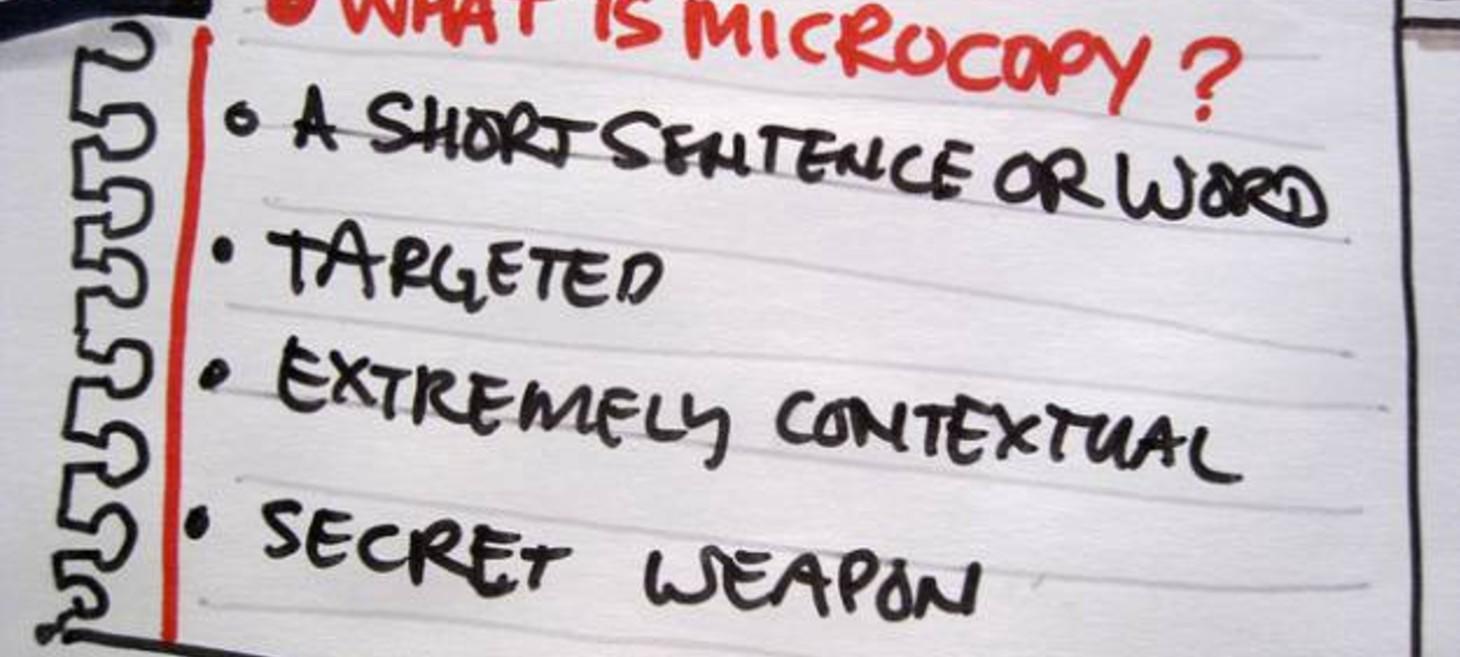 • WHAT IS MICROCOPY?
• A SHORT SENTENCE OR WORD
• TARGETED
• EXTREMELY CONTEXTUAL
• SECRET WEAPON